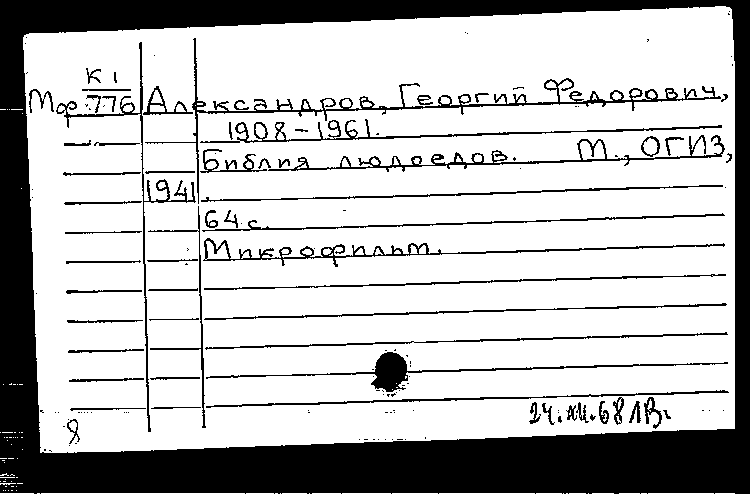 К 1
Мф 776 Александров, Георгий Федорович,
1908-1961.
Библия людоедов. М., ОГИЗ,
1941.
64 с.
Микрофильм.
24.XII.68
8